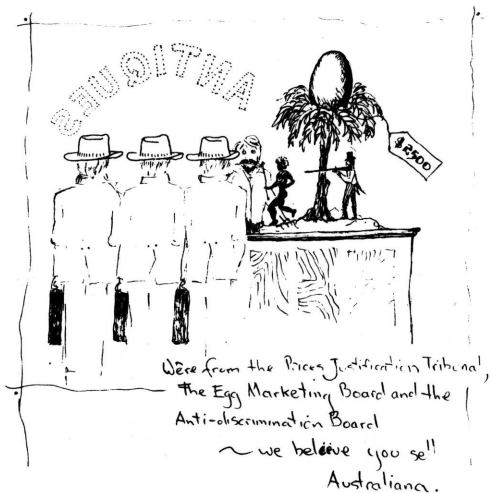 ANTIQUES
$2500
We're from the Prices Justification Tribunal,
The Egg Marketing Board and the
Anti-discrimination Board
~ we believe you sell
Australiana.